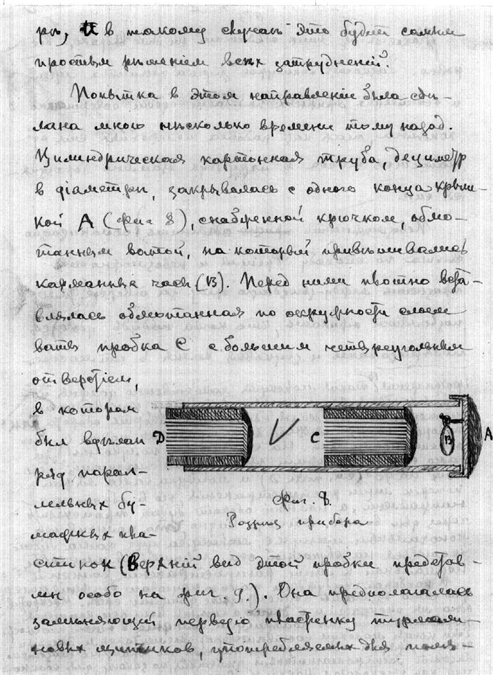 ръ, и в такому случаѣ это будет самым
простым рѣшеніем всѣх затрудненій.
Попытка в этом направленіи была сдѣ-
лана мною нѣсколько времени тому назад.
Цилиндрическая картонная труба, дециметр
в діаметрѣ, закрывалась с одного конца крыш-
кой А (фиг 8), снабженной крючком, обмо-
танным ватой, на который привѣшивались
карманные часы (В). Перед ними плотно встав-
влялась обмотанная по окружности слоем
ваты пробка С с большим четвреугольным
отверстіем,
в котором
был вдѣлан
ряд парал-
лельных бу-
мажных пла-
D V C В А
Фиг. 8.
Разрѣз прибора
стинок (Верхній вид этой пробки представ-
лен особо на фиг. 9.). Она предполагалась
замѣняющей первую пластинку турмали-
новых щипчиков, употребляемых для поля-